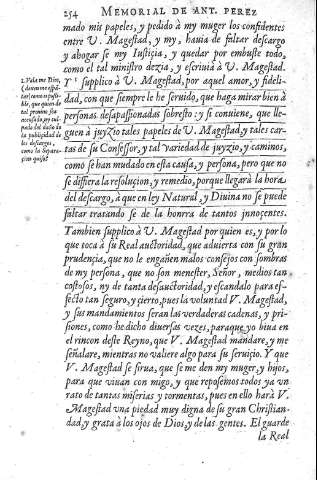 254 MEMORIAL DE ANT. PEREZ
mado mis papeles, y pedido à my muger los confidentes
entre V. Magestad, y my, hauia de faltar descargo
y ahogar se my Iusticia, y quedar por embuste todo,
como el tal ministro dezia, y escriuia à V. Magestad.
Y supplico à V. Magestad, por aquel amor, y fideli-
dad, con que siempre le he seruido, que haga mirar bien à
personas desapassionadas sobresto; y si conuiene, que lle-
guen à juyzio tales papeles de V. Magestad, y tales car-
tas de su Confessor, y tal variedad de juyzio, y caminos,
como se han mudado en esta causa, y persona, pero que no
se diffiera la resoluçion, y remedio, porque llegarà la hora
del descargo, à que en ley Natural, y Diuina no se puede
faltar tratando se de la honrra de tantos jnnocentes.
Tambien supplico à V. Magestad por quien es, y por lo
que toca à su Real auctoridad, que aduierta con su gran
prudençia, que no le engañen malos consejos con sombras
de my persona, que no son menester, Señor, medios tan
costosos, ny de tanta desauctoridad, y escandalo para ef-
fecto tan seguro, y cierto, pues la voluntad V. Magestad,
y sus mandamientos seran las verdaderas cadenas, y pri-
siones, como he dicho diuersas vezes, paraque yo biua en
el rincon deste Reyno, que V. Magestad mandare, y me
señalare, mientras no valiere algo para su seruiçio. Y que
V. Magestad se sirua, que se me den my muger, y hijos,
para que viuan con migo, y que reposemos todos ya vn
rato de tantas miserias y tormentas, pues en ello harà V.
Magestad vna piedad muy digna de su gran Christian-
dad, y grata à los ojos de Dios, y de las gentes. El guarde
la Real